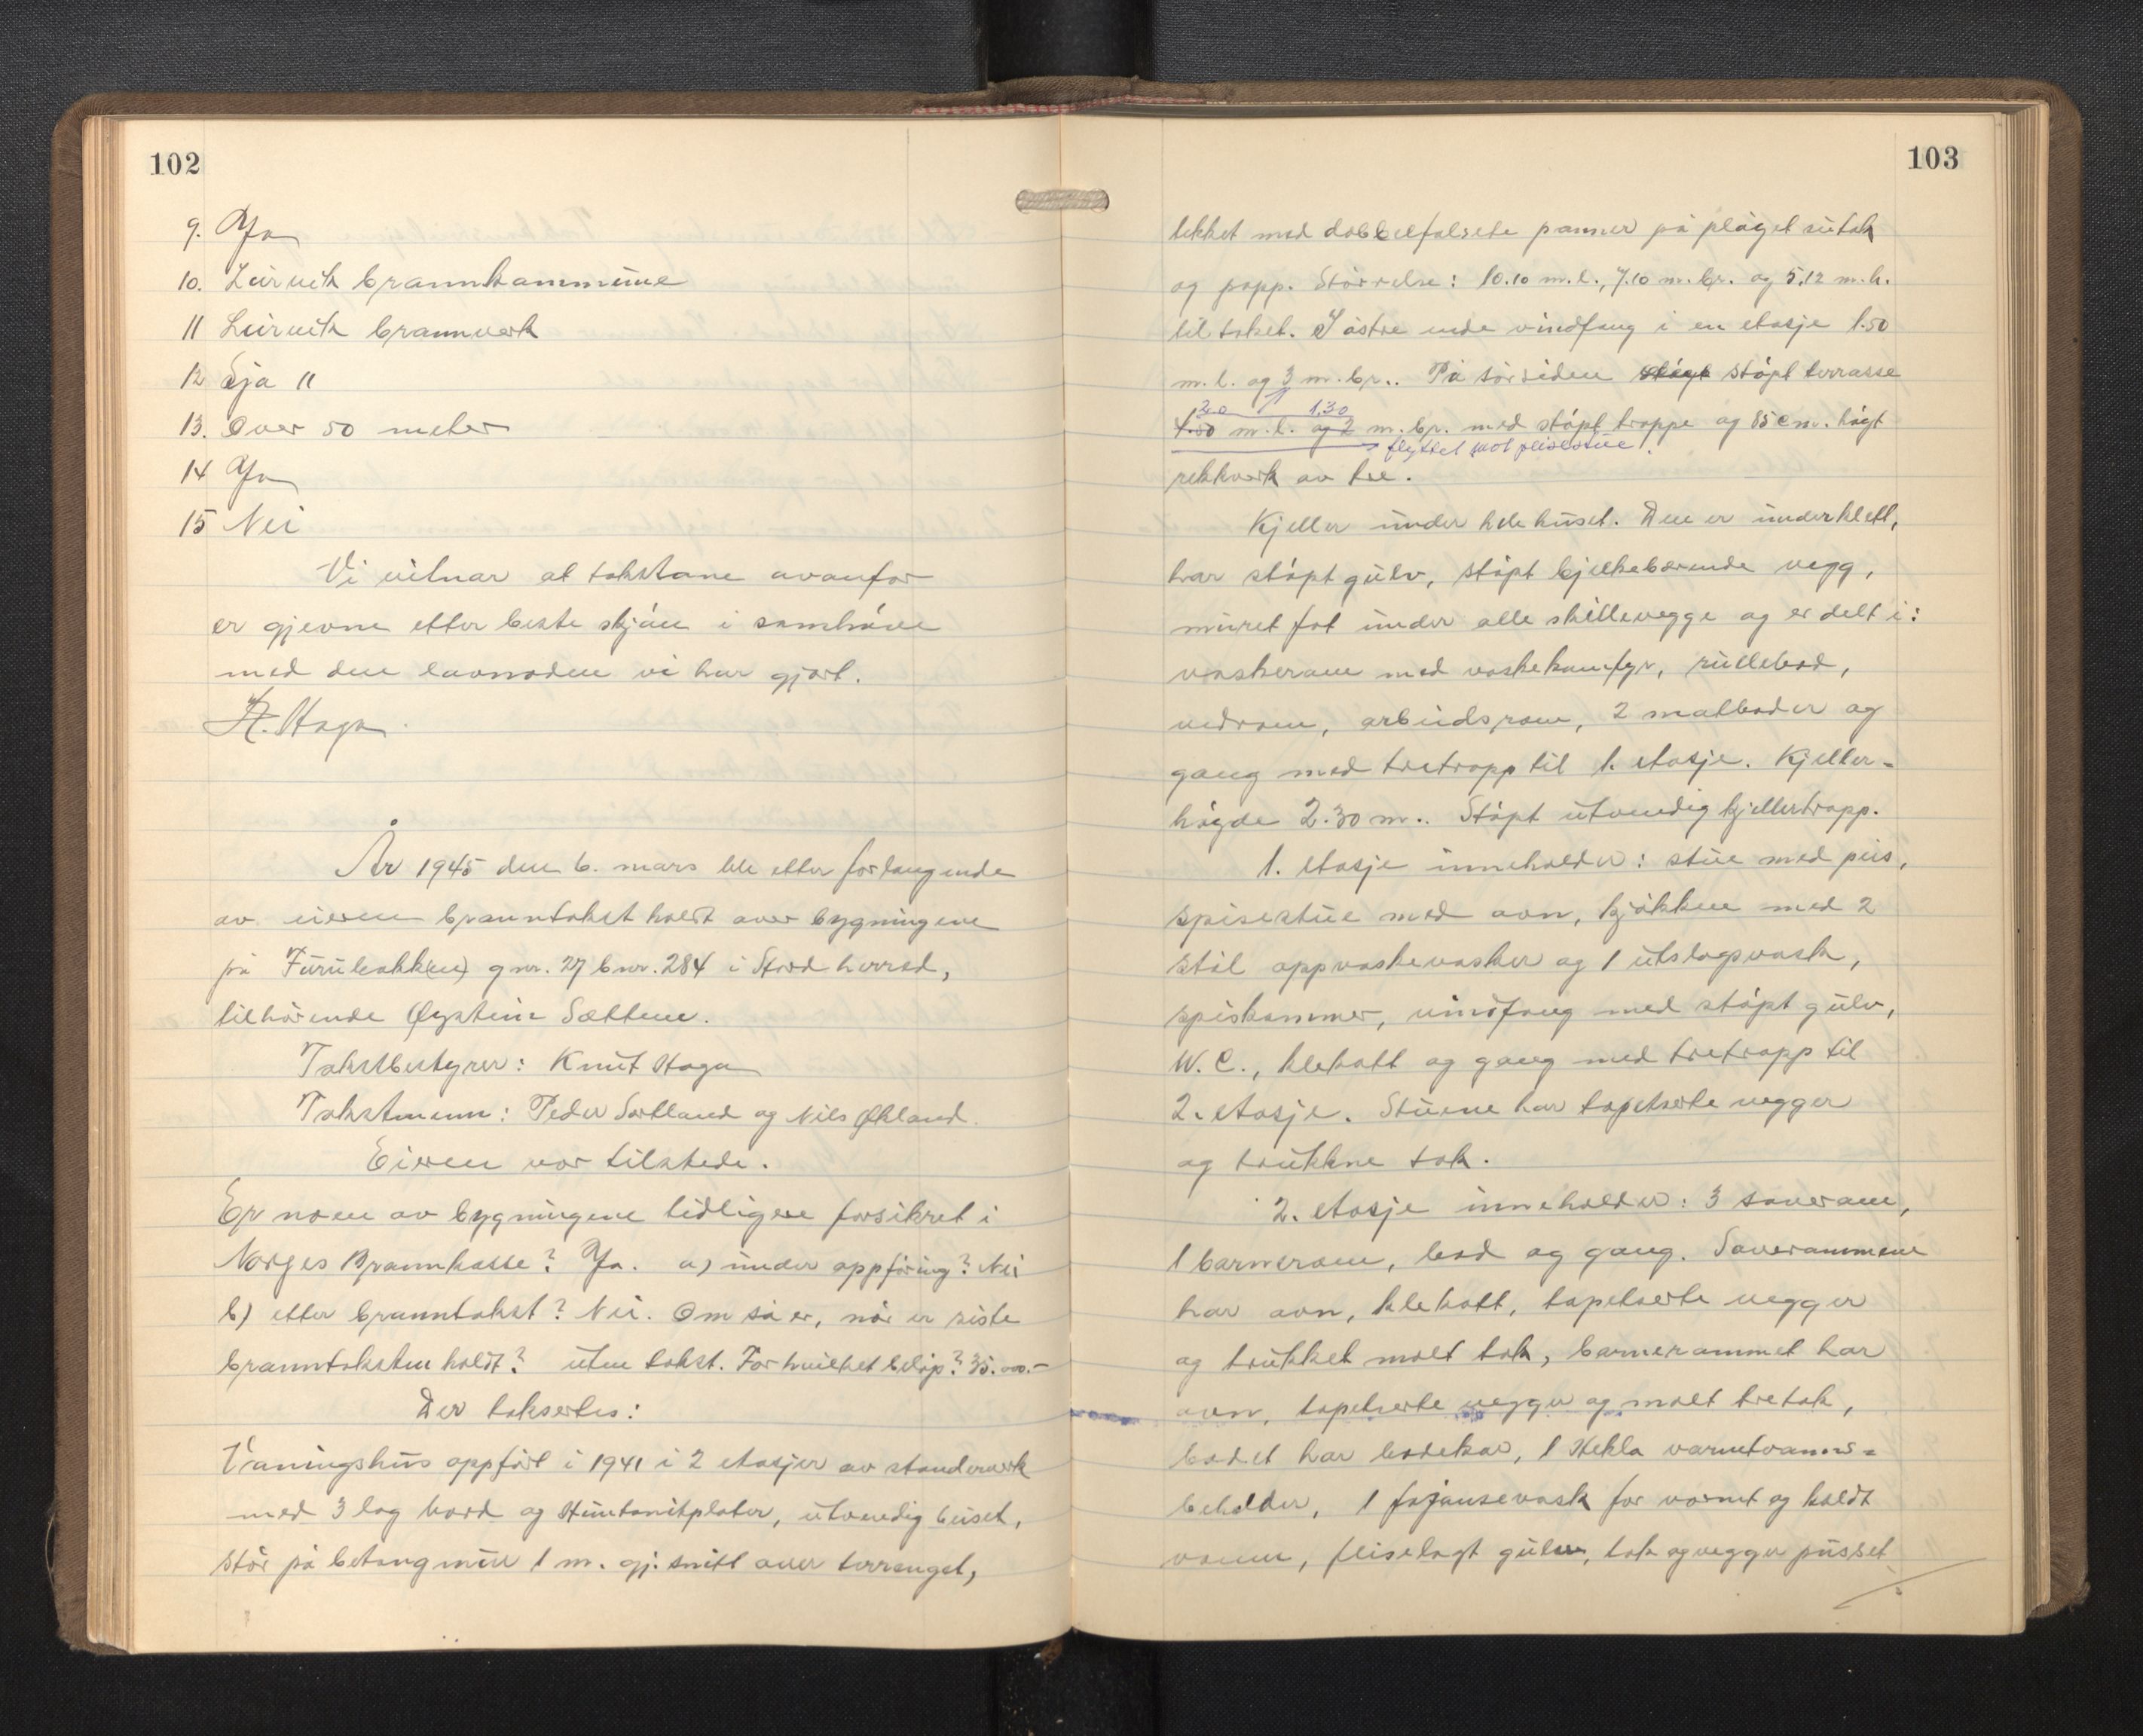 102
9. Ja
10. Leirvik brannkommune
11 Leirvik brannverk
12 Sja 11
13. Over 50 meter
14 Ja
15 Nei
Vi vitnar at takstane ovanfor
er gjevne etter beste skjön i samhöve
med den lovnaden vi har gjort.
K. Haga
År 1945 den 6. mars ble etter forlangende
av eieren branntakst holdt over bygningene
på Furubakk(en) gnr. 27 bnr. 284 i Stord herred,
tilhörende Øystein Sættem.
Takstbestyrer: Knut Haga
Takstmenn: Peder Sortland og Nils Økland.
Eieren var tilstede.
Er noen av bygningene tidligere forsikret i
Norges Brannkasse? Ja. a) under oppföring? Nei
b) etter branntakst? Nei. Om så er, når er siste
branntaksten holdt? uten takst. For hvilket belöp? 35.000.-
Der takseres:
Våningshus oppfört i 1941 i 2 etasjer av standerverk
med 3 lag bord og Huntonitplater, utvendig beiset,
står på betongmur 1 m. gj. snitt over terrenget,
103
tekket med dobbelfalsete panner på pløyet sutak
og papp. Störrelse: 10.10 m. l., 7.10 m. br. og 5,12 m. h.
til taket. I östre ende vindfang i en etasje 1.50
m. l. og 3 m. br.. På sörsiden støpt terrasse
30 1,30
1.50 m. l. og 2 m. br. med støpt trappe og 85 cm. høgt
flyttet mot peisestue.
rekkverk av tre.
Kjeller under hele huset. Den er underklett,
har støpt gulv, støpt bjelkebærende vegg,
muret fot under alle skillevegge og er delt i:
vaskerom med vaskekomfyr, rullebod,
vedrom, arbeidsrom, 2 matboder og
gang med tretrapp til 1. etasje. Kjeller-
høgde 2.30 m.. Støpt utvendig kjellertrapp.
1. etasje inneholder: stue med peis,
spisestue med ovn, kjøkken med 2
stål oppvaskevasker og 1 utslagsvask,
spiskammer, vindfang med støpt gulv,
W. C., klekott og gang med tretrapp til
2. etasje. Stuene har tapetserte vegger
og trukkne tak.
2. etasje inneholder: 3 soverom,
1 barnerom, bad og gang. Soverommene
har ovn, klekott, tapetserte vegger
og trukket malt tak, barnerommet har
ovn, tapetserte vegger og malt tretak,
badet har badekar, 1 Hekla varmtvanns-
beholder, 1 fajansevask for varmt og koldt
vann, fliselagt gulv, tak og vegger pusset